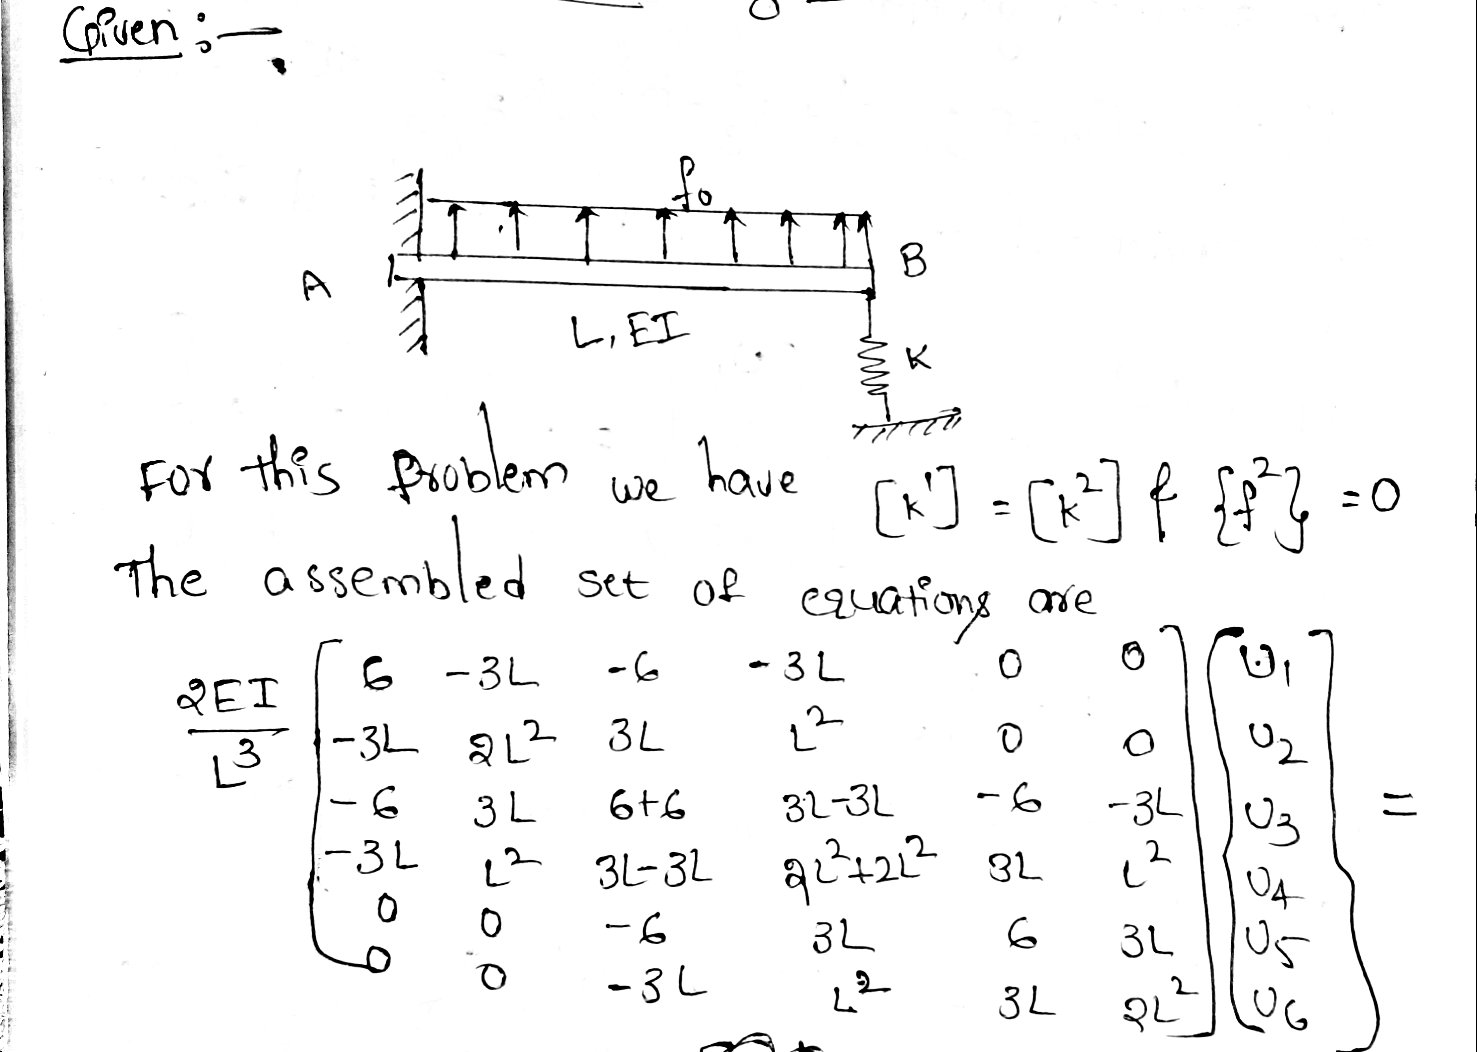 Given :-
f₀
A
B
L, EI
K
For this problem we have [k'] = [k²] & {f²} = 0
The assembled set of equations are
2EI/L³ [ 6 -3L -6 -3L 0 0 ] [ U₁ ]
[ -3L 2L² 3L L² 0 0 ] [ U₂ ]
[ -6 3L 6+6 3L-3L -6 -3L ] [ U₃ ] =
[ -3L L² 3L-3L 2L²+2L² 3L L² ] [ U₄ ]
[ 0 0 -6 3L 6 3L ] [ U₅ ]
[ 0 0 -3L L² 3L 2L² ] [ U₆ ]